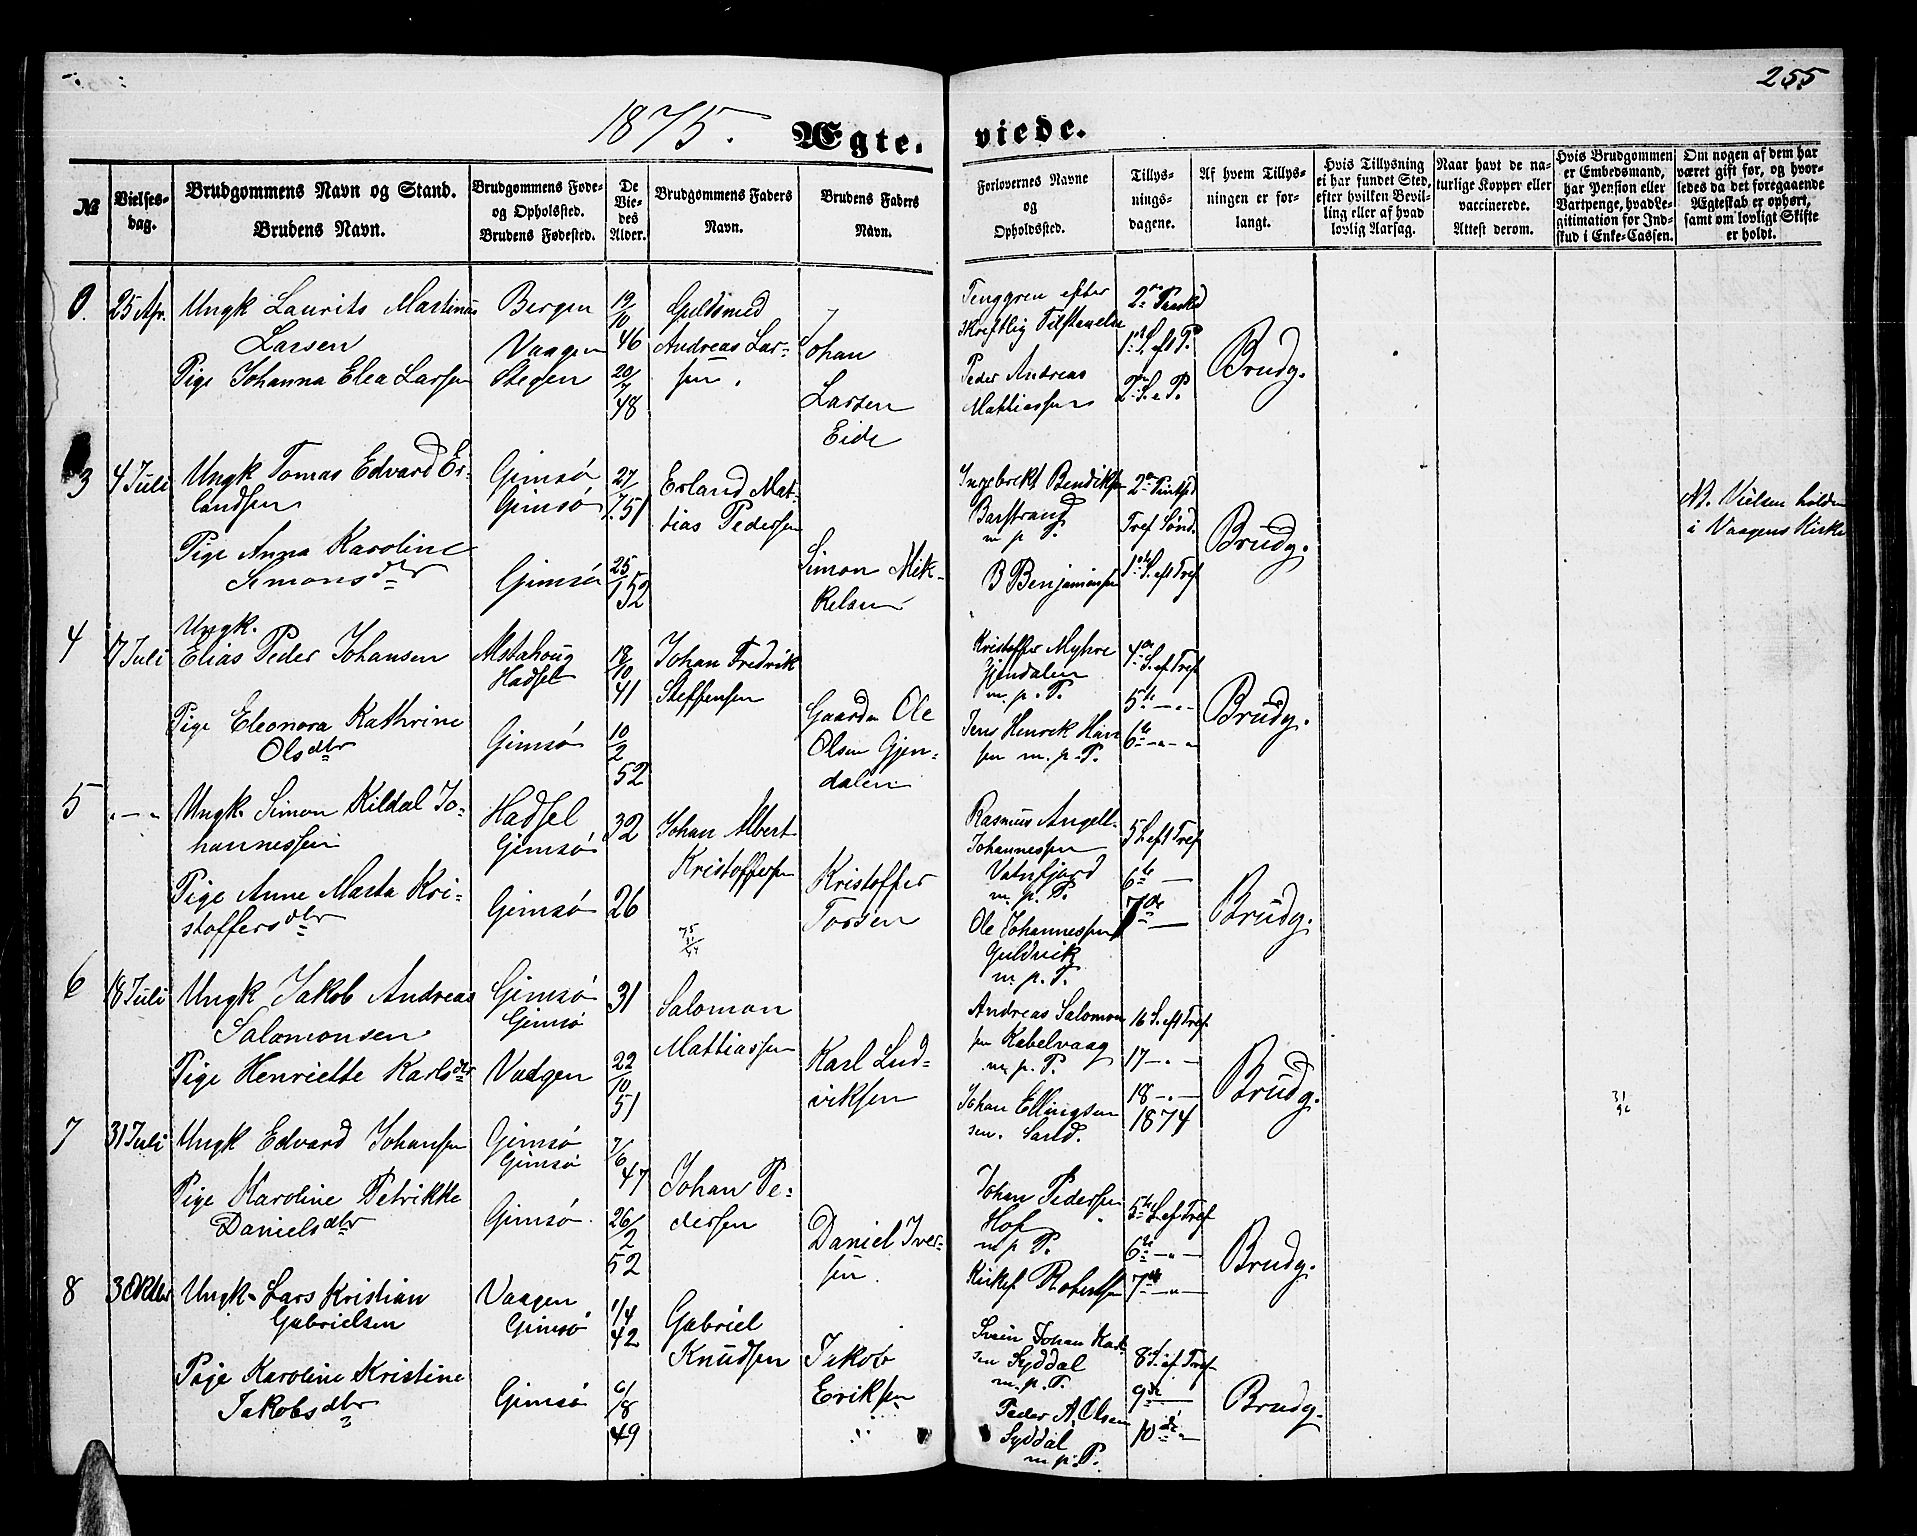 255
1875.
Ægte. viede.
№
Vielses-
dag.
Brudgommens Navn og Stand.
Brudens Navn.
Brudgommens Føde-
og Opholdsted.
Brudens Fødested.
De
Vie-
des
Alder.
Brudgommens Faders
Navn.
Brudens Faders
Navn.
Forlovernes Navne
og
Opholdsted.
Tillys-
nings-
dagene.
Af hvem Tillys-
ningen er for-
langt.
Hvis Tillysning
ei har fundet Sted,
efter hvilken Bevil-
ling eller af hvad
lovlig Aarsag.
Naar havt de na-
turlige Kopper eller
vaccinerede.
Attest derom.
Hvis Brudgommen
er Embedsmand,
har Pension eller
Vartpenge, hvad Le-
gitimation for Ind-
skud i Enke-Cassen.
Om nogen af dem har
været gift før, og hvor-
ledes da det foregaaende
Ægteskab er ophørt,
samt om lovligt Skifte
er holdt.
25 Apr.
Ungk Laurits Martinus
Larsen
Pige Johanna Elea Larsen
Bergen
Vaagen
Stegen
19/10 46
20/7 48
Guldsmed
Andreas Lar-
sen.
Johan
Larsen
Eide
Tenggren efter
skriftlig Tilstaaelse
Peder Andreas
Mattiassen
1ste S. eft P.
2den S. e P.
Brudg.
3
4 Juli
Ungk Tomas Edvard Er-
landsen
Pige Anna Karoline
Simonsdtr
Gimsø
Gimsø
Gimsø
27/7. 51
25/1 52
Erland Mat-
tias Pedersen
Simon Mik-
kelsen
Ingebrekt Bendiksen
Barstrand
m p T.
B Benjaminsen
Tref Sønd.
1ste S. eft Tref
Brudg.
Vielsen holden
i Vaagens Kirke
4
7 Juli
Ungk.
Elias Peder Johansen
Pige Eleonora Kathrine
Olsdtr
Alstahoug
Hadsel
Gimsø
18/10 41
10/2 52
Johan Fredrik
Steffensen
Gaardm Ole
Olsen Gjen-
dalen
Kristoffer Myhre
Gjendalen
m. p. T.
Jens Henrik Han
sen m. p. T.
4de S. ef Tref
5te — „ —
6te — „ —
Brudg.
5
„ — „
Ungk. Simon Kildal Jo-
hannessen
Pige Anne Marta Kri-
stoffersdtr
Hadsel
Gimsø
Gimsø
32
26
Johan Albert
Kristoffersen
Kristoffer
Torsen
Rasmus Angell
Johannessen
Vatnfjord
m. p. T.
Ole Johannessen
Guldvik
m. p. T.
5 S. eft Tref
6te —
7de —
Brudg.
6
18 Juli
Ungk Jakob Andreas
Salomonsen
Pige Henriette Karlsdtr
Gimsø
Gimsø
Vaagen
31
22/10 51
Salomon
Mattiassen
Karl Lud-
viksen
Andreas Salomon
sen Kabelvaag
m. p. T.
Johan Ellingsen
sen. Sand.
16 S. eft Tref
17 — „ —
18 — „ —
1874
Brudg.
7
31 Juli
Ungk Edvard Johansen
Pige Karoline Petrikke
Danielsdtr
Gimsø
Gimsø
Gimsø
7/6 47
26/2 52
Johan Pe-
dersen
Daniel Iver-
sen.
Johan Pedersen
Hof
m p T.
Kirkes. Robertsen
5te S. ef Tref
6te — „ —
7de — „ —
Brudg.
8
3 Oktbr
Ungk. Lars Kristian
Gabrielsen
Pige Karoline Kristine
Jakobsdtr
Vaagen
Gimsø
Gimsø
1/4 42
6/8 49
Gabriel
Knudsen
Jakob
Eriksen
Svein Johan Karl
sen Syddal
m. p. T.
Peder A. Olsen
Syddal
m. p. T.
8 S. ef Tref
9de —
10de „
Brudg.